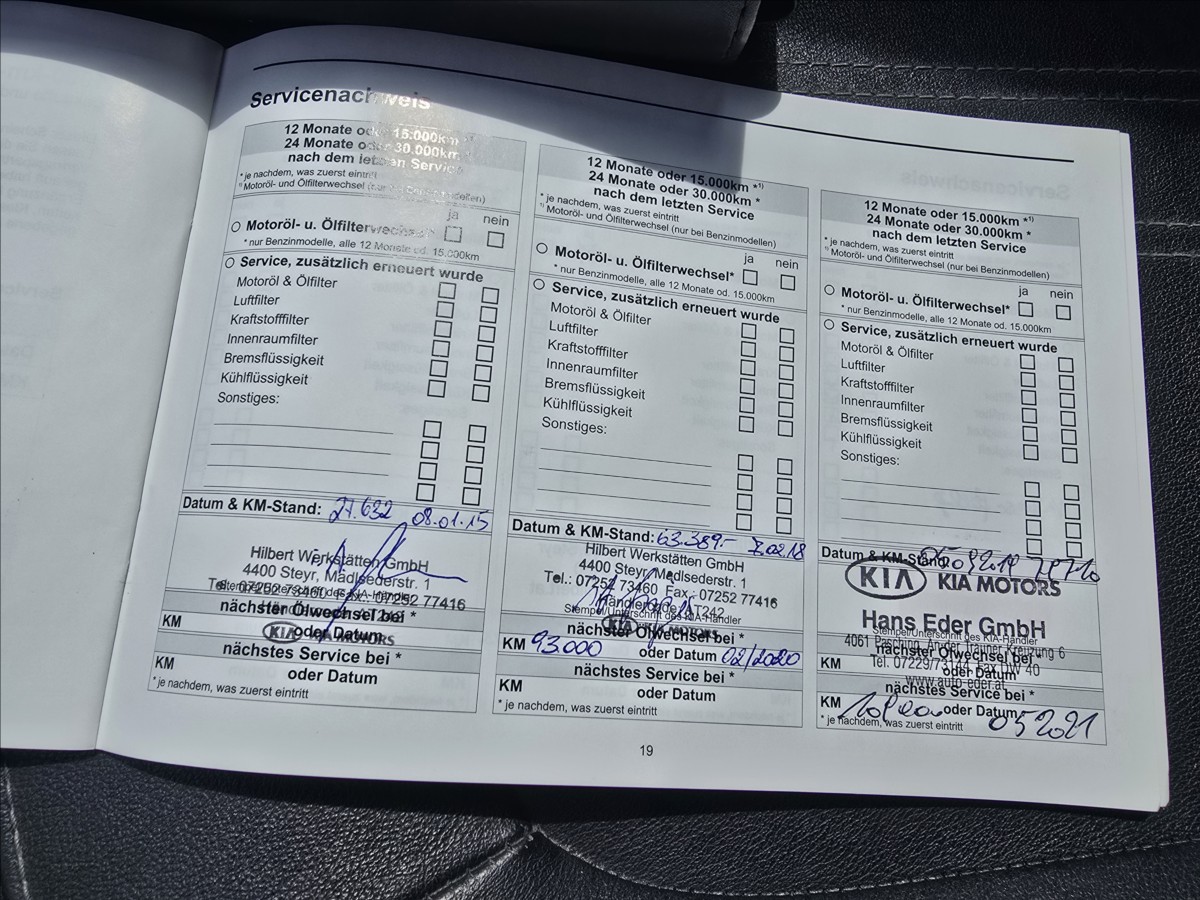 Servicenachweis
12 Monate oder 15.000km *¹⁾
24 Monate oder 30.000km *
nach dem letzten Service
* je nachdem, was zuerst eintritt
¹⁾ Motoröl- und Ölfilterwechsel (nur bei Benzinmodellen)
ja nein
Motoröl- u. Ölfilterwechsel*
* nur Benzinmodelle, alle 12 Monate od. 15.000km
Service, zusätzlich erneuert wurde
Motoröl & Ölfilter
Luftfilter
Kraftstofffilter
Innenraumfilter
Bremsflüssigkeit
Kühlflüssigkeit
Sonstiges:
Datum & KM-Stand: 27.632 08.01.15
Hilbert Werkstätten GmbH
4400 Steyr, Madlsederstr. 1
Tel.: 07252 73460 Fax.: 07252 77416
Stempel/Unterschrift des KIA-Händler
nächster Ölwechsel bei *
KM oder Datum
KIA KIA MOTORS
nächstes Service bei *
KM oder Datum
* je nachdem, was zuerst eintritt
12 Monate oder 15.000km *¹⁾
24 Monate oder 30.000km *
nach dem letzten Service
* je nachdem, was zuerst eintritt
¹⁾ Motoröl- und Ölfilterwechsel (nur bei Benzinmodellen)
ja nein
Motoröl- u. Ölfilterwechsel*
* nur Benzinmodelle, alle 12 Monate od. 15.000km
Service, zusätzlich erneuert wurde
Motoröl & Ölfilter
Luftfilter
Kraftstofffilter
Innenraumfilter
Bremsflüssigkeit
Kühlflüssigkeit
Sonstiges:
Datum & KM-Stand: 63.389.-
Hilbert Werkstätten GmbH
4400 Steyr, Madlsederstr. 1
Tel.: 07252 73460 Fax.: 07252 77416
Händlercode: AT242
Stempel/Unterschrift des KIA-Händler
KIA KIA MOTORS
nächster Ölwechsel bei *
KM 93.000 oder Datum 02/2020
nächstes Service bei *
KM oder Datum
* je nachdem, was zuerst eintritt
12 Monate oder 15.000km *¹⁾
24 Monate oder 30.000km *
nach dem letzten Service
* je nachdem, was zuerst eintritt
¹⁾ Motoröl- und Ölfilterwechsel (nur bei Benzinmodellen)
ja nein
Motoröl- u. Ölfilterwechsel*
* nur Benzinmodelle, alle 12 Monate od. 15.000km
Service, zusätzlich erneuert wurde
Motoröl & Ölfilter
Luftfilter
Kraftstofffilter
Innenraumfilter
Bremsflüssigkeit
Kühlflüssigkeit
Sonstiges:
Datum & KM-Stand:
KIA KIA MOTORS
Hans Eder GmbH
Stempel/Unterschrift des KIA-Händler
4061 Pasching, Trauner Kreuzung 6
nächster Ölwechsel bei *
Tel. 07229/73144 Fax DW 40
KM oder Datum
www.auto-eder.at
nächstes Service bei *
KM oder Datum 05 2021
* je nachdem, was zuerst eintritt
19